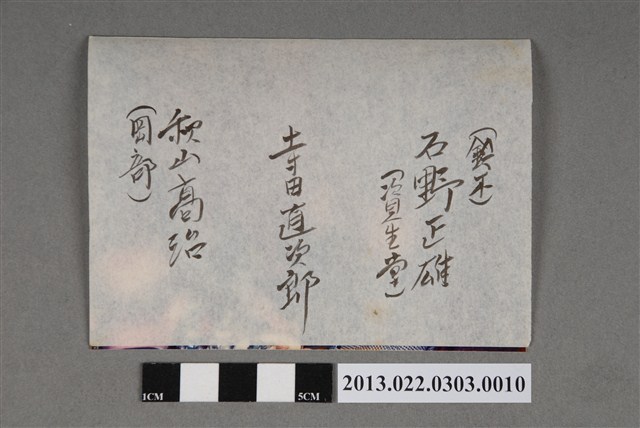 石野正雄
(資生堂)
寺田直次郎
秋山高治
(岡部)
1CM
5CM
2013.022.0303.0010